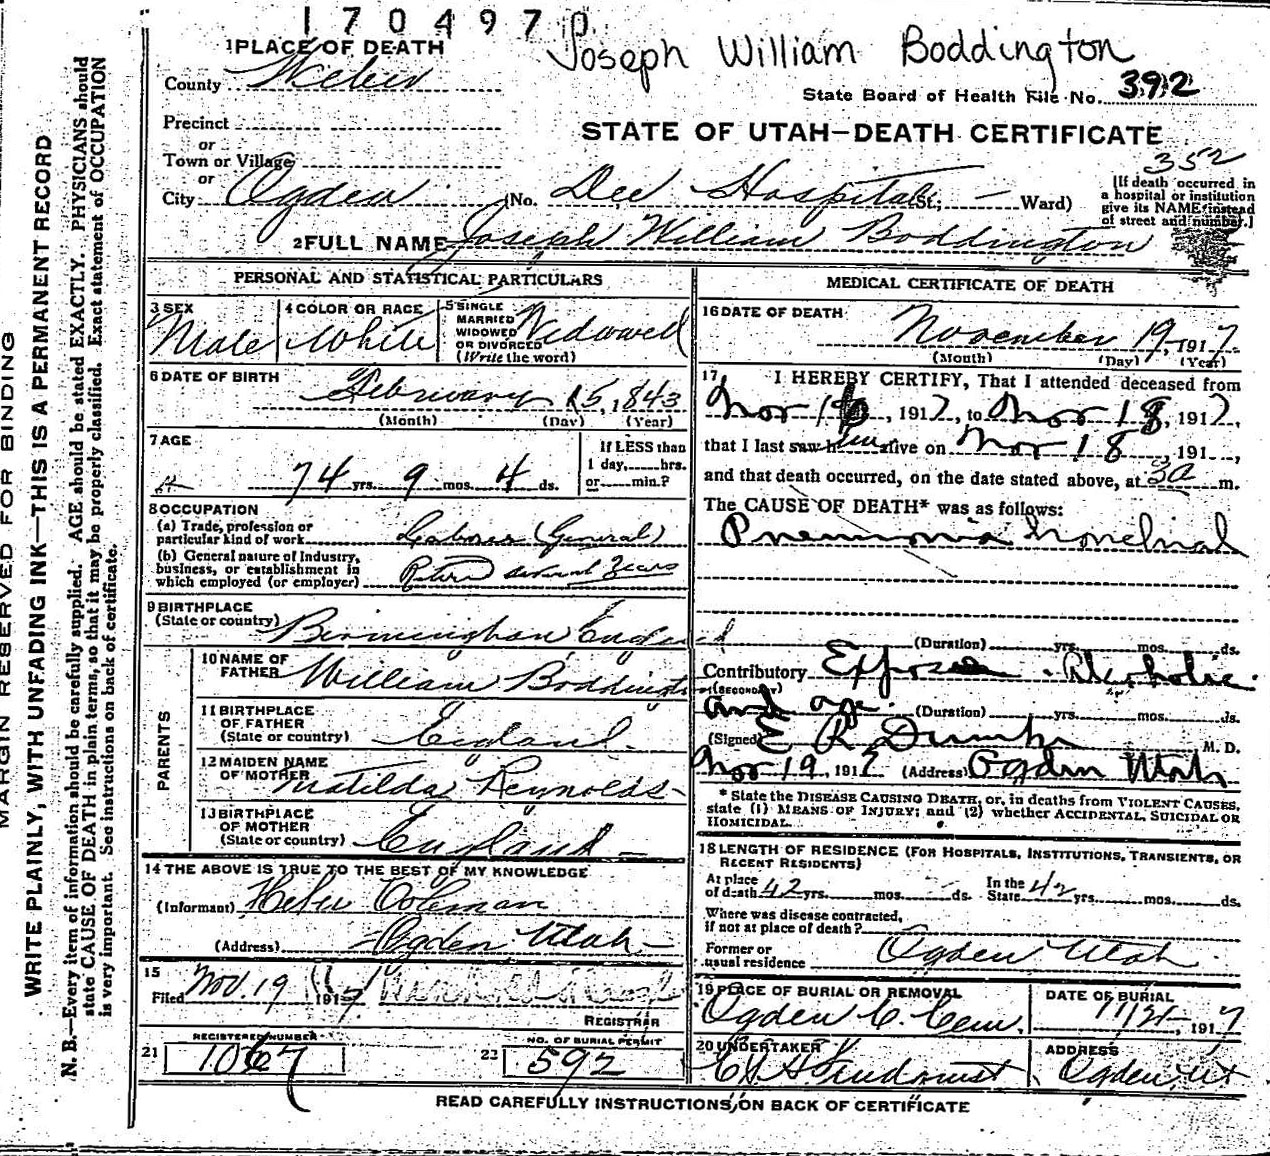 1704970
Joseph William Boddington
1 PLACE OF DEATH
County Weber
State Board of Health File No. 392
Precinct
or
Town or Village
or
STATE OF UTAH—DEATH CERTIFICATE
352
City Ogden (No. Dee Hospital St; — Ward)
[If death occurred in
a hospital or institution
give its NAME instead
of street and number.]
2 FULL NAME Joseph William Boddington
PERSONAL AND STATISTICAL PARTICULARS
3 SEX
Male
4 COLOR OR RACE
White
5 SINGLE
MARRIED
WIDOWED
OR DIVORCED
(Write the word)
Widowed
6 DATE OF BIRTH
February 15, 1843
(Month) (Day) (Year)
7 AGE
74 yrs. 9 mos. 4 ds.
If LESS than
1 day, hrs.
or min.?
8 OCCUPATION
(a) Trade, profession or
particular kind of work Laborer (General)
(b) General nature of Industry,
business, or establishment in
which employed (or employer) several years
9 BIRTHPLACE
(State or country) Birmingham England
PARENTS
10 NAME OF
FATHER William Boddington
11 BIRTHPLACE
OF FATHER
(State or country) England
12 MAIDEN NAME
OF MOTHER Matilda Reynolds
13 BIRTHPLACE
OF MOTHER
(State or country) England
14 THE ABOVE IS TRUE TO THE BEST OF MY KNOWLEDGE
(Informant) Coleman
(Address) Ogden Utah
15
Filed Nov. 19 1917
REGISTRAR
REGISTERED NUMBER
21 1067
NO. OF BURIAL PERMIT
22 592
MEDICAL CERTIFICATE OF DEATH
16 DATE OF DEATH
November 19, 1917
(Month) (Day) (Year)
17 I HEREBY CERTIFY, That I attended deceased from
Nov 16, 1917, to Nov 18, 1917,
that I last saw him alive on Nov 18, 191 ,
and that death occurred, on the date stated above, at 3a m.
The CAUSE OF DEATH* was as follows:
Pneumonia bronchial
(Duration) yrs. mos. ds.
Contributory Alcoholic
(SECONDARY)
and age.
(Duration) yrs. mos. ds.
(Signed) E R M. D.
Nov 19, 1917 (Address) Ogden Utah
* State the DISEASE CAUSING DEATH, or, in deaths from VIOLENT CAUSES,
state (1) MEANS OF INJURY; and (2) whether ACCIDENTAL, SUICIDAL OR
HOMICIDAL.
18 LENGTH OF RESIDENCE (FOR HOSPITALS, INSTITUTIONS, TRANSIENTS, OR
RECENT RESIDENTS)
At place
of death 42 yrs. mos. ds. In the
State 42 yrs. mos. ds.
Where was disease contracted,
if not at place of death?
Former or
usual residence Ogden Utah
19 PLACE OF BURIAL OR REMOVAL
Ogden C. Cem.
DATE OF BURIAL
11/21, 1917
20 UNDERTAKER
ADDRESS
Ogden, Ut
READ CAREFULLY INSTRUCTIONS ON BACK OF CERTIFICATE
MARGIN RESERVED FOR BINDING
WRITE PLAINLY, WITH UNFADING INK—THIS IS A PERMANENT RECORD
N. B.—Every item of information should be carefully supplied. AGE should be stated EXACTLY. PHYSICIANS should
state CAUSE OF DEATH in plain terms, so that it may be properly classified. Exact statement of OCCUPATION
is very important. See instructions on back of certificate.